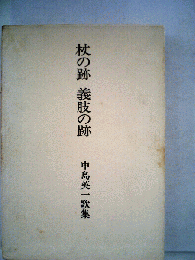 杖の跡 義肢の跡
中島英一歌集